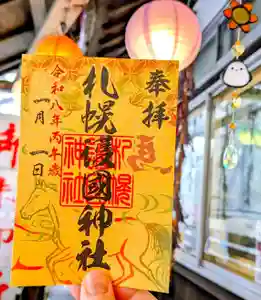 奉拝
札幌護國神社
令和八年丙午歳
一月一日
札幌
護國
神社